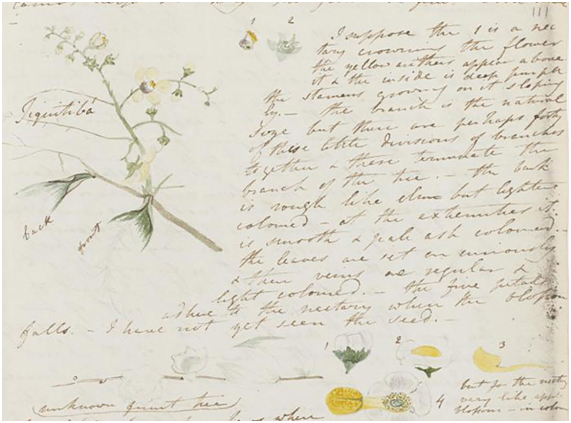 111
1 2
I suppose the 1 is a nec
tary crowning the flower
the yellow anthers appear above
it & the inside is deep purple
the stamens growing on it sloping
by. — the branch is the natural
Size but there are perhaps forty
of these little divisions of branches
together & these terminate the
branch of the tree. — the bark
is rough like elm but lighter
coloured — at the extremities it
is smooth & pale ash coloured. —
the leaves are set on curiously
& their veins are regular &
light coloured. — the five petals
adhere to the nectary when the blossom
falls. — I have not yet seen the seed. —
Jiquitibá
back
front
1 2 3
4
unknown fruit tree
where
but for the
very like
blossoms — in colour